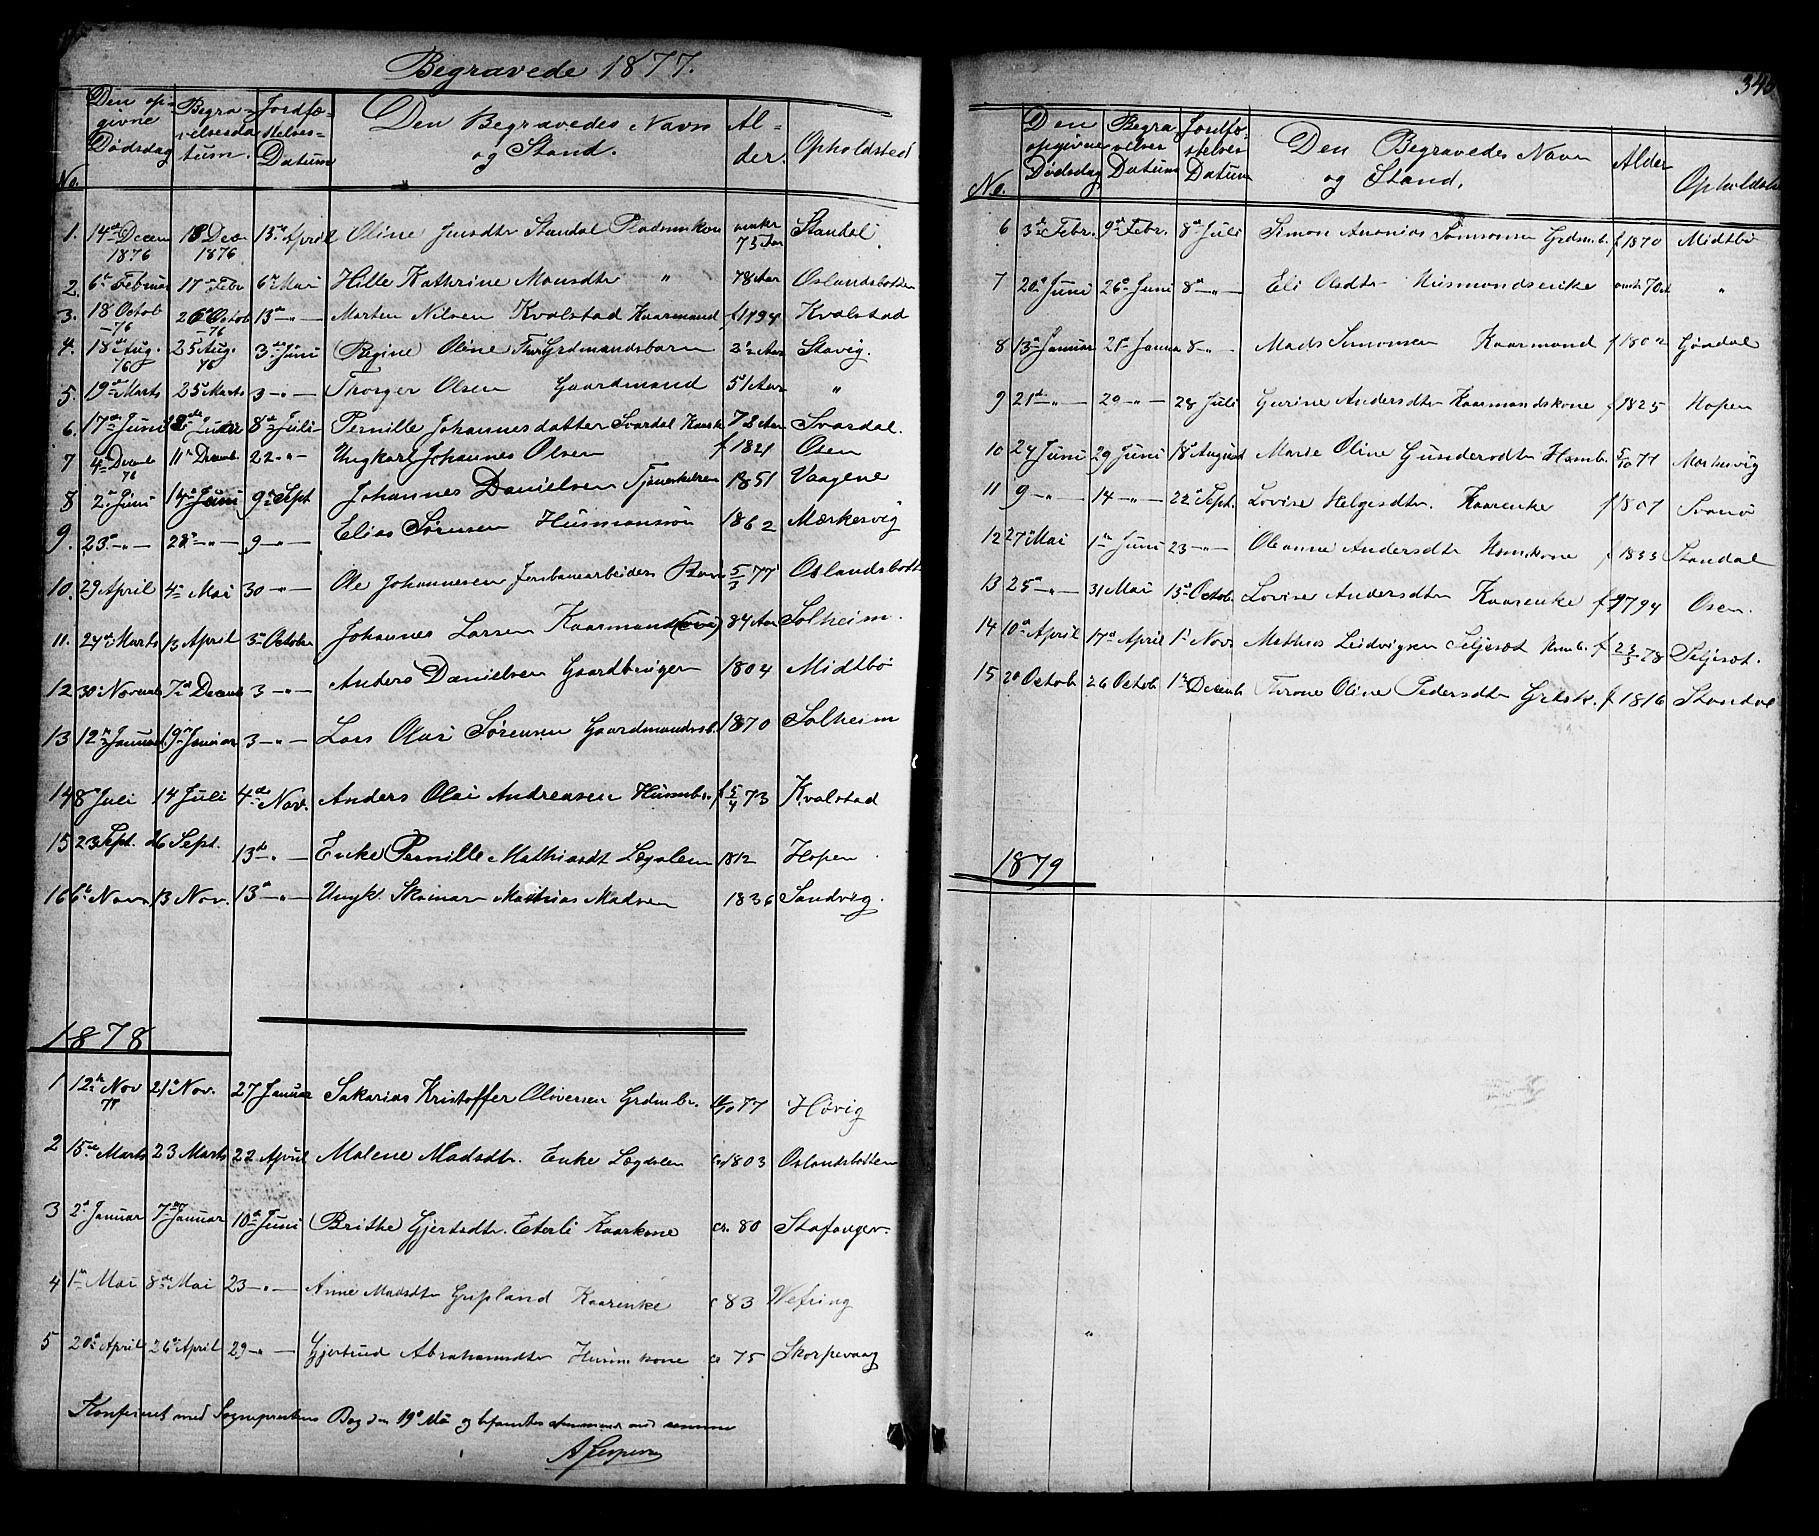 Begravede 1877.
No. Den opgivne Dødsdag Begravelsesdatum. Jordfæstelses-Datum Den Begravedes Navn og Stand. Alder. Opholdsted
1. 14de Decem 1876 18 Dec 1876 13de April Oline Jensdtr Standal 75 Aar Standal
2. 6te Februar 17de Febr 6te Mai Hille Kathrine Monsdtr " 78 Aar Oslandsbotten
3. 18 Octob -76 26 Octob -76 13de -"- Morten Nilsen Kvalstad Kaarmand f 1794 Kvalstad
4. 18de Aug. 76 25 Aug. 76 3de Juni Regine Oline Grdmandsbarn 2½ Aar Stavig.
5. 19de Marts 25de Marts 3 -"- Thorger Olsen Gaardmand 51 Aar "
6. 17de Juni Juni 8de Juli Pernille Johannesdatter Svardal 72 Aar Svasdal.
7 4de Decemb 76 11te Decemb. 22 -"- Ungkarl Johannes Olsen f 1821 Osen
8 2de Juni 14de Juni 9de Sept Johannes Danielsen 1851 Vaagene
9. 23de -"- 28de -"- 9 -"- Elias Sørensen Husmanssøn 1862 Mærkesvig
10. 29 April 4de Mai 30 -"- Ole Johannesen Jernbanearbeiders Barn 5/3 77 Oslandsbott
11. 24de Marts 13 April 3de Octobr Johannes Larsen Kaarmand 84 Aar Solheim.
12 30te Novemb 7de Decemb 3 -"- Anders Danielsen Gaardbruger 1804 Midtbø
13 12te Januar 19de Januar 3 -"- Lars Olai Sørensen Gaardmandssb. 1870 Solheim
14 8de Juli 14 Juli 4de Nov. Anders Olai Andreasen Husmb. f 5/4 73 Kvalstad
15 23 Sept. 26 Sept. 13de -"- Enke Pernille Mathiasdt Lægslem 1812 Hopen
16 6te Nov. 13 Nov. 13de -"- Ungk. Mathias Madsen 1836 Sandvig.
1878
1 12te Nov 77 21de Nov. 27 Januar Sakarias Kristoffer Oliversen Grdmb. 77 Høvig
2 15de Marts 23 Marts 22 April Malene Madsdtr. Enke Lægdslem Ca 1803 Oslandsbotten
3 2de Januar 7de Januar 10de Juni Brithe Gjertsdtr. Eterli Kaarkone ca. 80 Stafanger.
4 1te Mai 8de Mai 23 -"- Anne Madsdtr Gripland Kaarenke c 83 Wefring
5 20de April 26de April 29 -"- Gjertrud Abrahamsdtr Husm kone ca 75 Skorpevaag
Konfereret med Sogneprestens Bog den 19de
346
No. Den opgivne Dødsdag Begravelses Datum Jordfæstelses Datum Den Begravedes Navn og Stand. Alder Opholdsted
6 3de Febr. 9de Febr. 8de Juli Simon Ananias Samsonsen Grdmb. f 1870 Midtbø
7 20de Juni 26de Juni 8de -"- Eli Oledtr Husmandsenke omtr 70 "
8 13de Januar 21de Januar 8 -"- Mads Simonsen Kaarmand f 1802 Gjøsdal
9 21de -"- 29 -"- 28 Juli Gurine Andersdtr Kaarmandskone f 1825 Hopen
10 24 Juni 29 Juni 18de August Marie Oline Gundersdtr Husmb. 5/10 77 Mærkesvig
11 9 -"- 14 -"- 22de Sept. Lovise Helgesdtr. Kaarenke f 1807 Svanø
12 27de Mai 1te Juni 23 -"- Oleanne Andersdtr Husmkone f 1833 Standal
13 25de -"- 31 Mai 13de Octob. Lovise Andersdtr Kaarenke f 1794 Osen.
14 10de April 17de April 1te Nov. Mathias Leidvigsen Seljeset Husmb. f 23/3 78 Seljeset.
15 20 Octob 26 Octob 1te Decemb Throne Oline Pedersdtr Grdsk. f 1816 Standal
1879